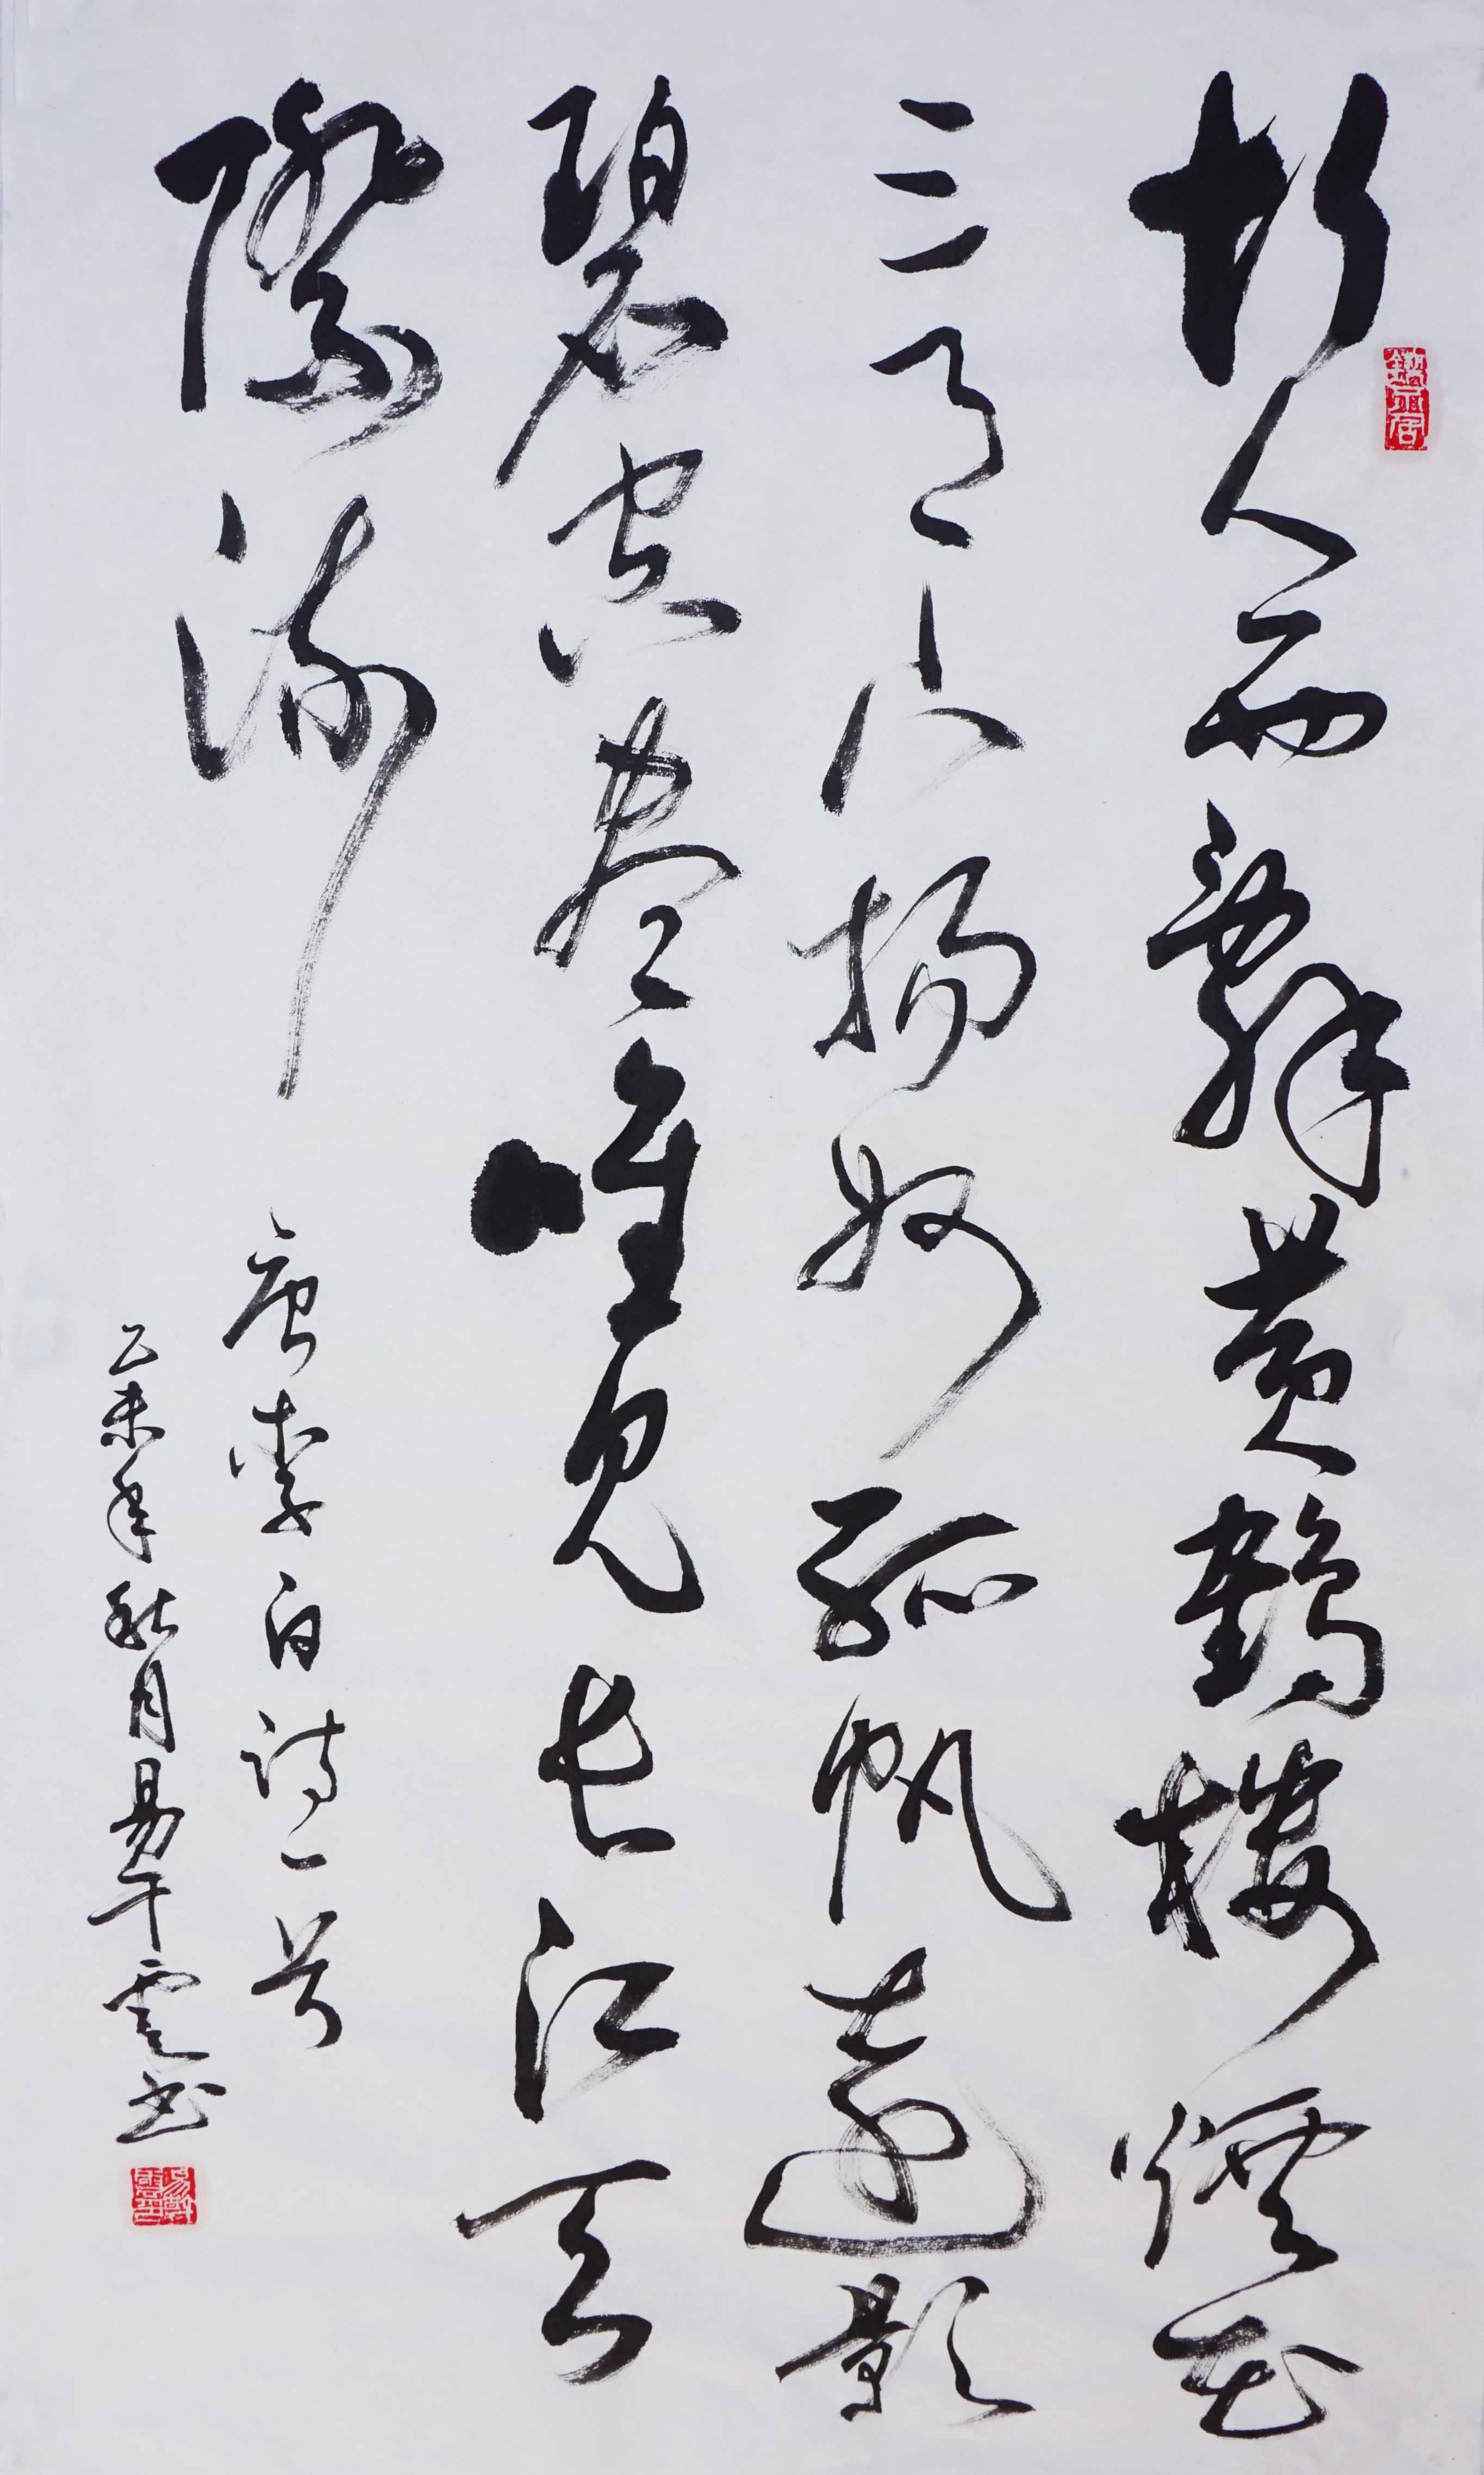 故人西辭黃鶴樓煙花
三月下揚州孤帆遠影
碧空盡唯見長江天
際流
唐李白詩一首
乙未年秋月易干雲書